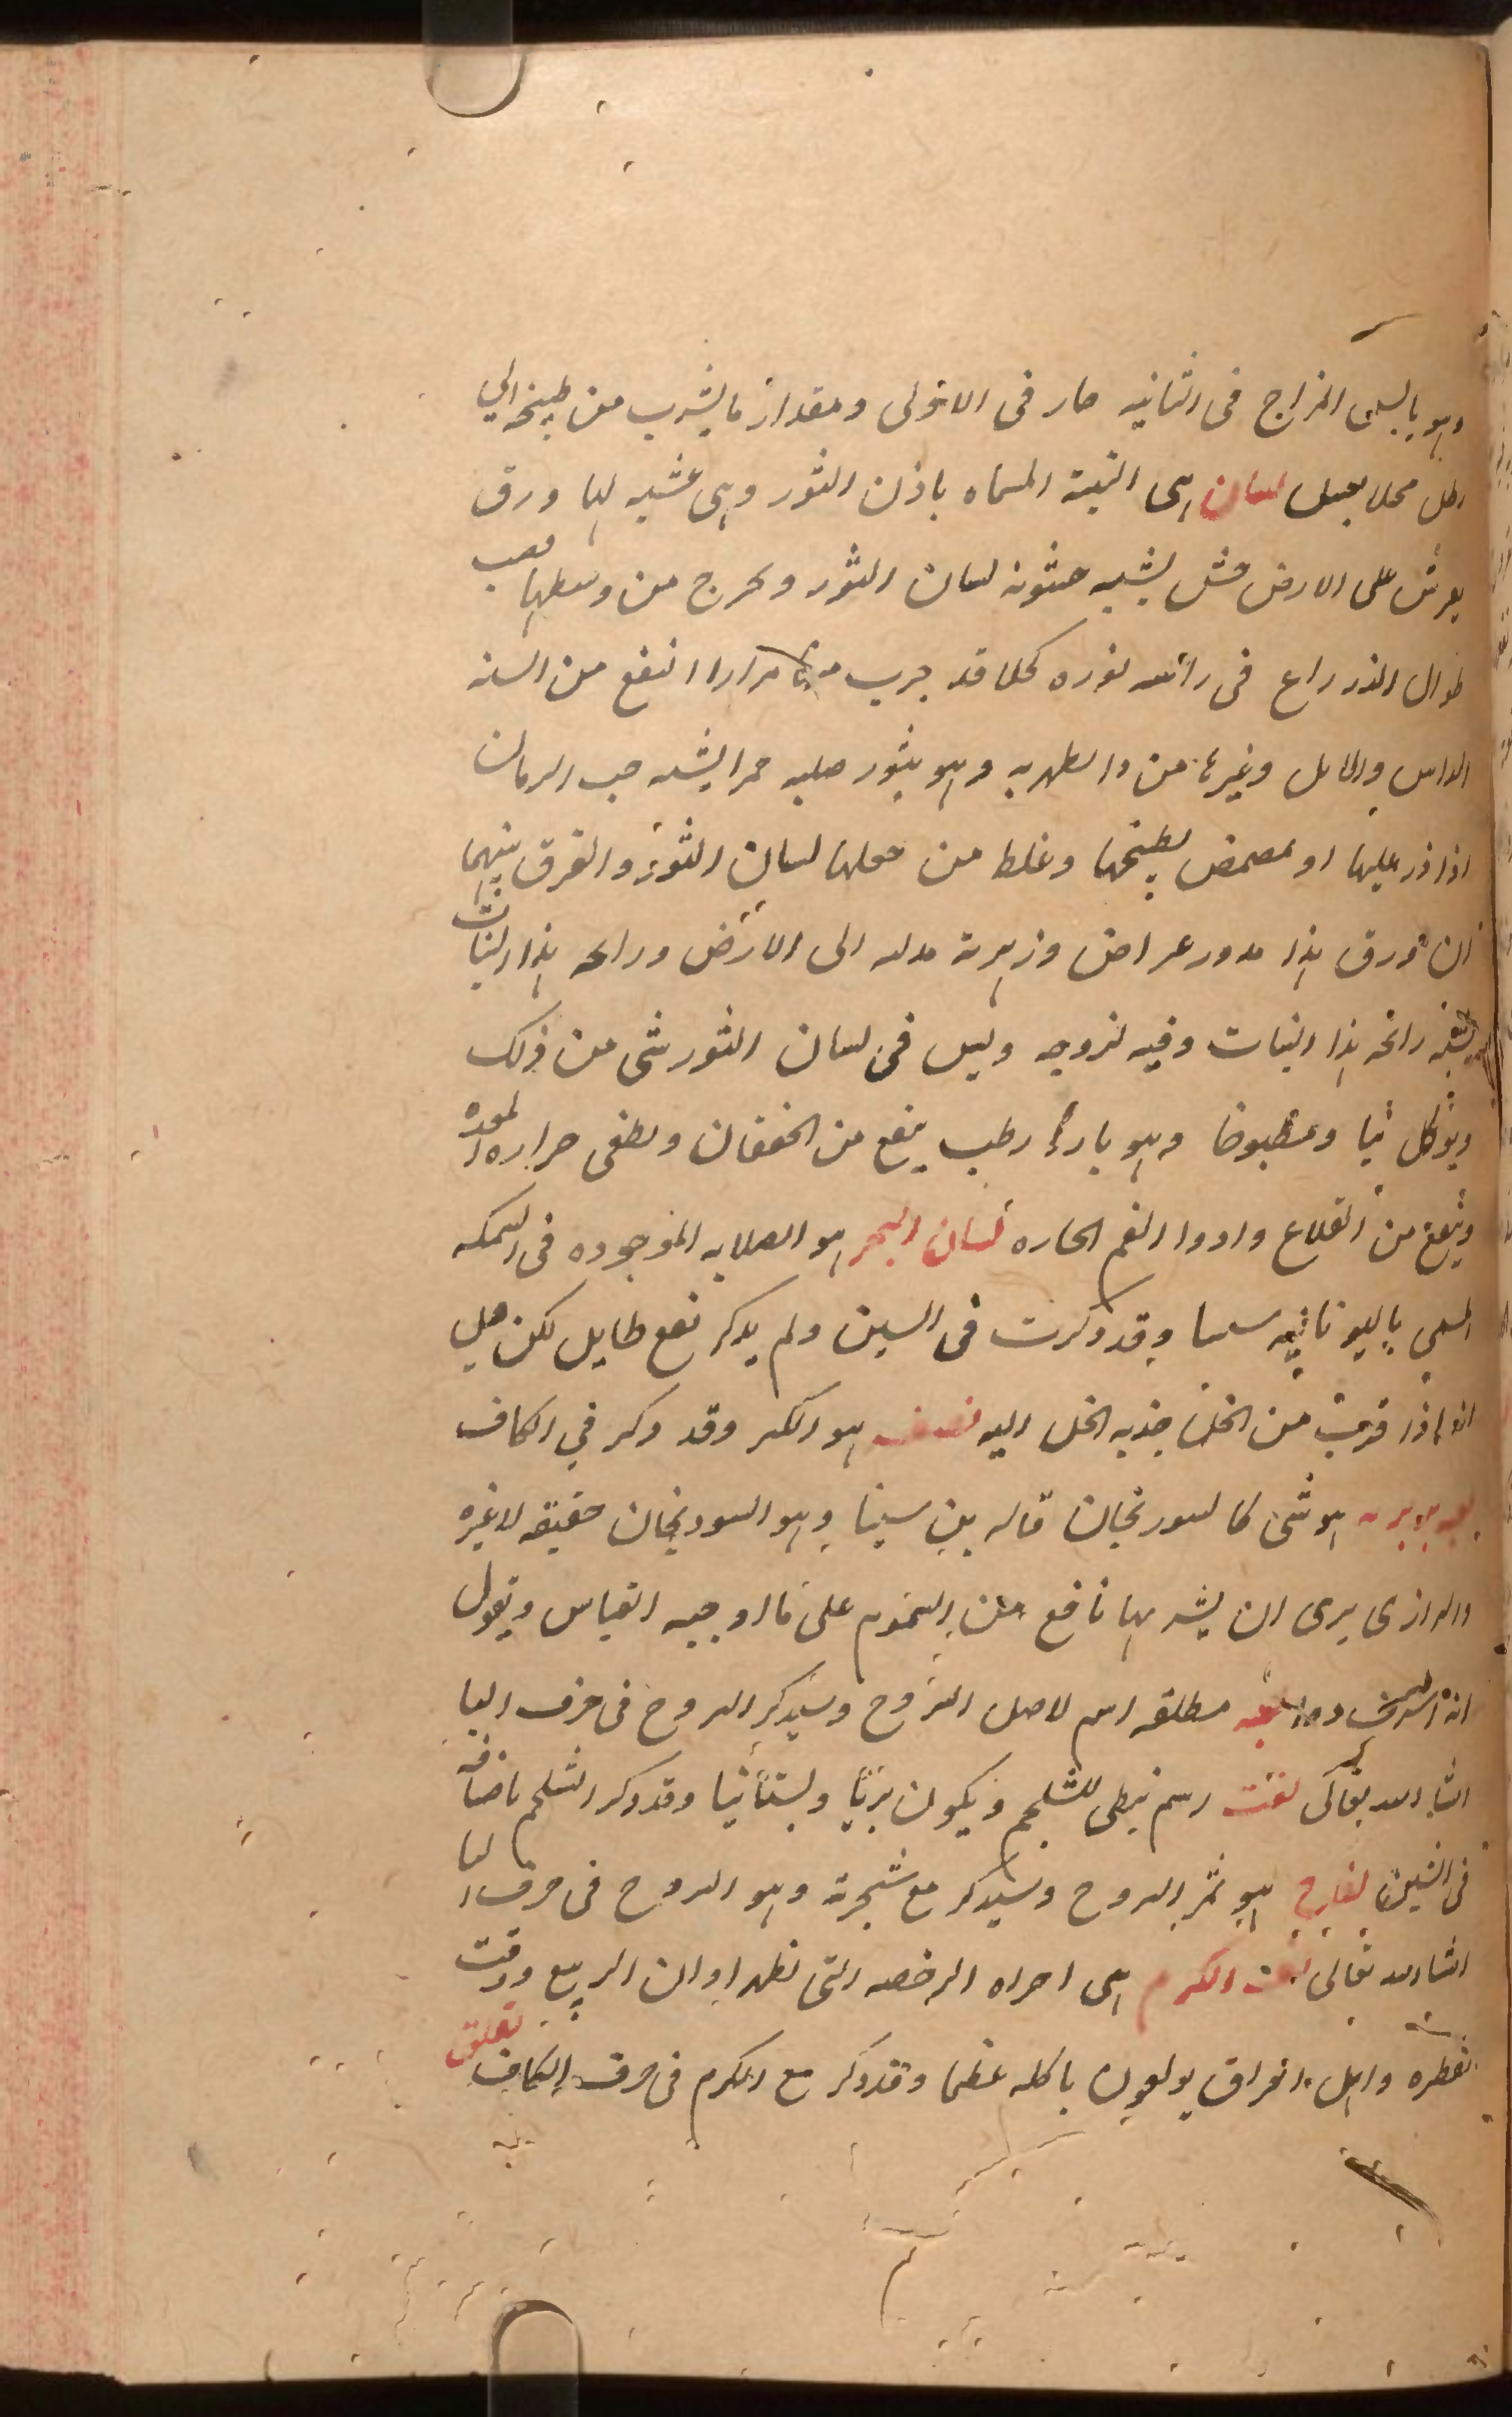 وهو يابس المزاج فى الثانيه حار فى الاولى ومقدار ما يشرب من طبيخه الي
رطل محلا بعسل لسان هى النبتة المسماه باذن الثور وهى عشبه لها ورق
يفرش على الارض خشن يشبه خشونه لسان الثور ويخرج من وسطها قصب
طوال الذراع فى راسه نوره كحلا قد جرب مرارا النفع من السنه
الراس وغيرها من وهو بثور صلبه حمرا يشبه حب الرمان
اذا ذر عليها او تمضمض بطبيخها وغلط من جعلها لسان الثور والفرق بينهما
ان ورق هذا مدور عراض وزهرته مدلاه الى الارض ورائحه هذا النبات
رائحه هذا النبات وفيه لزوجه وليس فى لسان الثور شى من ذلك
ويوكل نيا ومطبوخا وهو بارد رطب ينفع من الخفقان ويطفى حراره المعده
وينفع من القلاع وادوا الفم الحاره لسان البحر هو الصلابه الموجوده فى السمكه
المسمى باليونانيه سبيا وقد ذكرت فى السين ولم يذكر نفع طايل لكن قيل
انه اذا قربت من الخل جذبه الخل اليه لصف هو الكبر وقد ذكر في الكاف
لعبه بربريه هو شى كالسورنجان قاله بن سينا وهو السورنجان حقيقه لا غيره
والرازى يرى ان يشربها نافع من السموم على ما اوجبه القياس ويقول
انه مطلقه اسم لاصل اليبروح وسيذكر اليبروح فى حرف اليا
انشا الله تعالى لفت اسم نبطى للشلجم ويكون بريا وبستانيا وقد ذكر الشلجم باضافه
فى الشين لفاح هو ثمر اليبروح وسيذكر مع شجرته وهو اليبروح فى حرف اليا
انشا الله تعالى الكرم هى اجزاه الرخصه التى تظهر اوان الربيع وقت
تفطره واهل العراق يولعون باكله عظما وقد ذكر مع الكرم فى حرف الكاف
تعلق